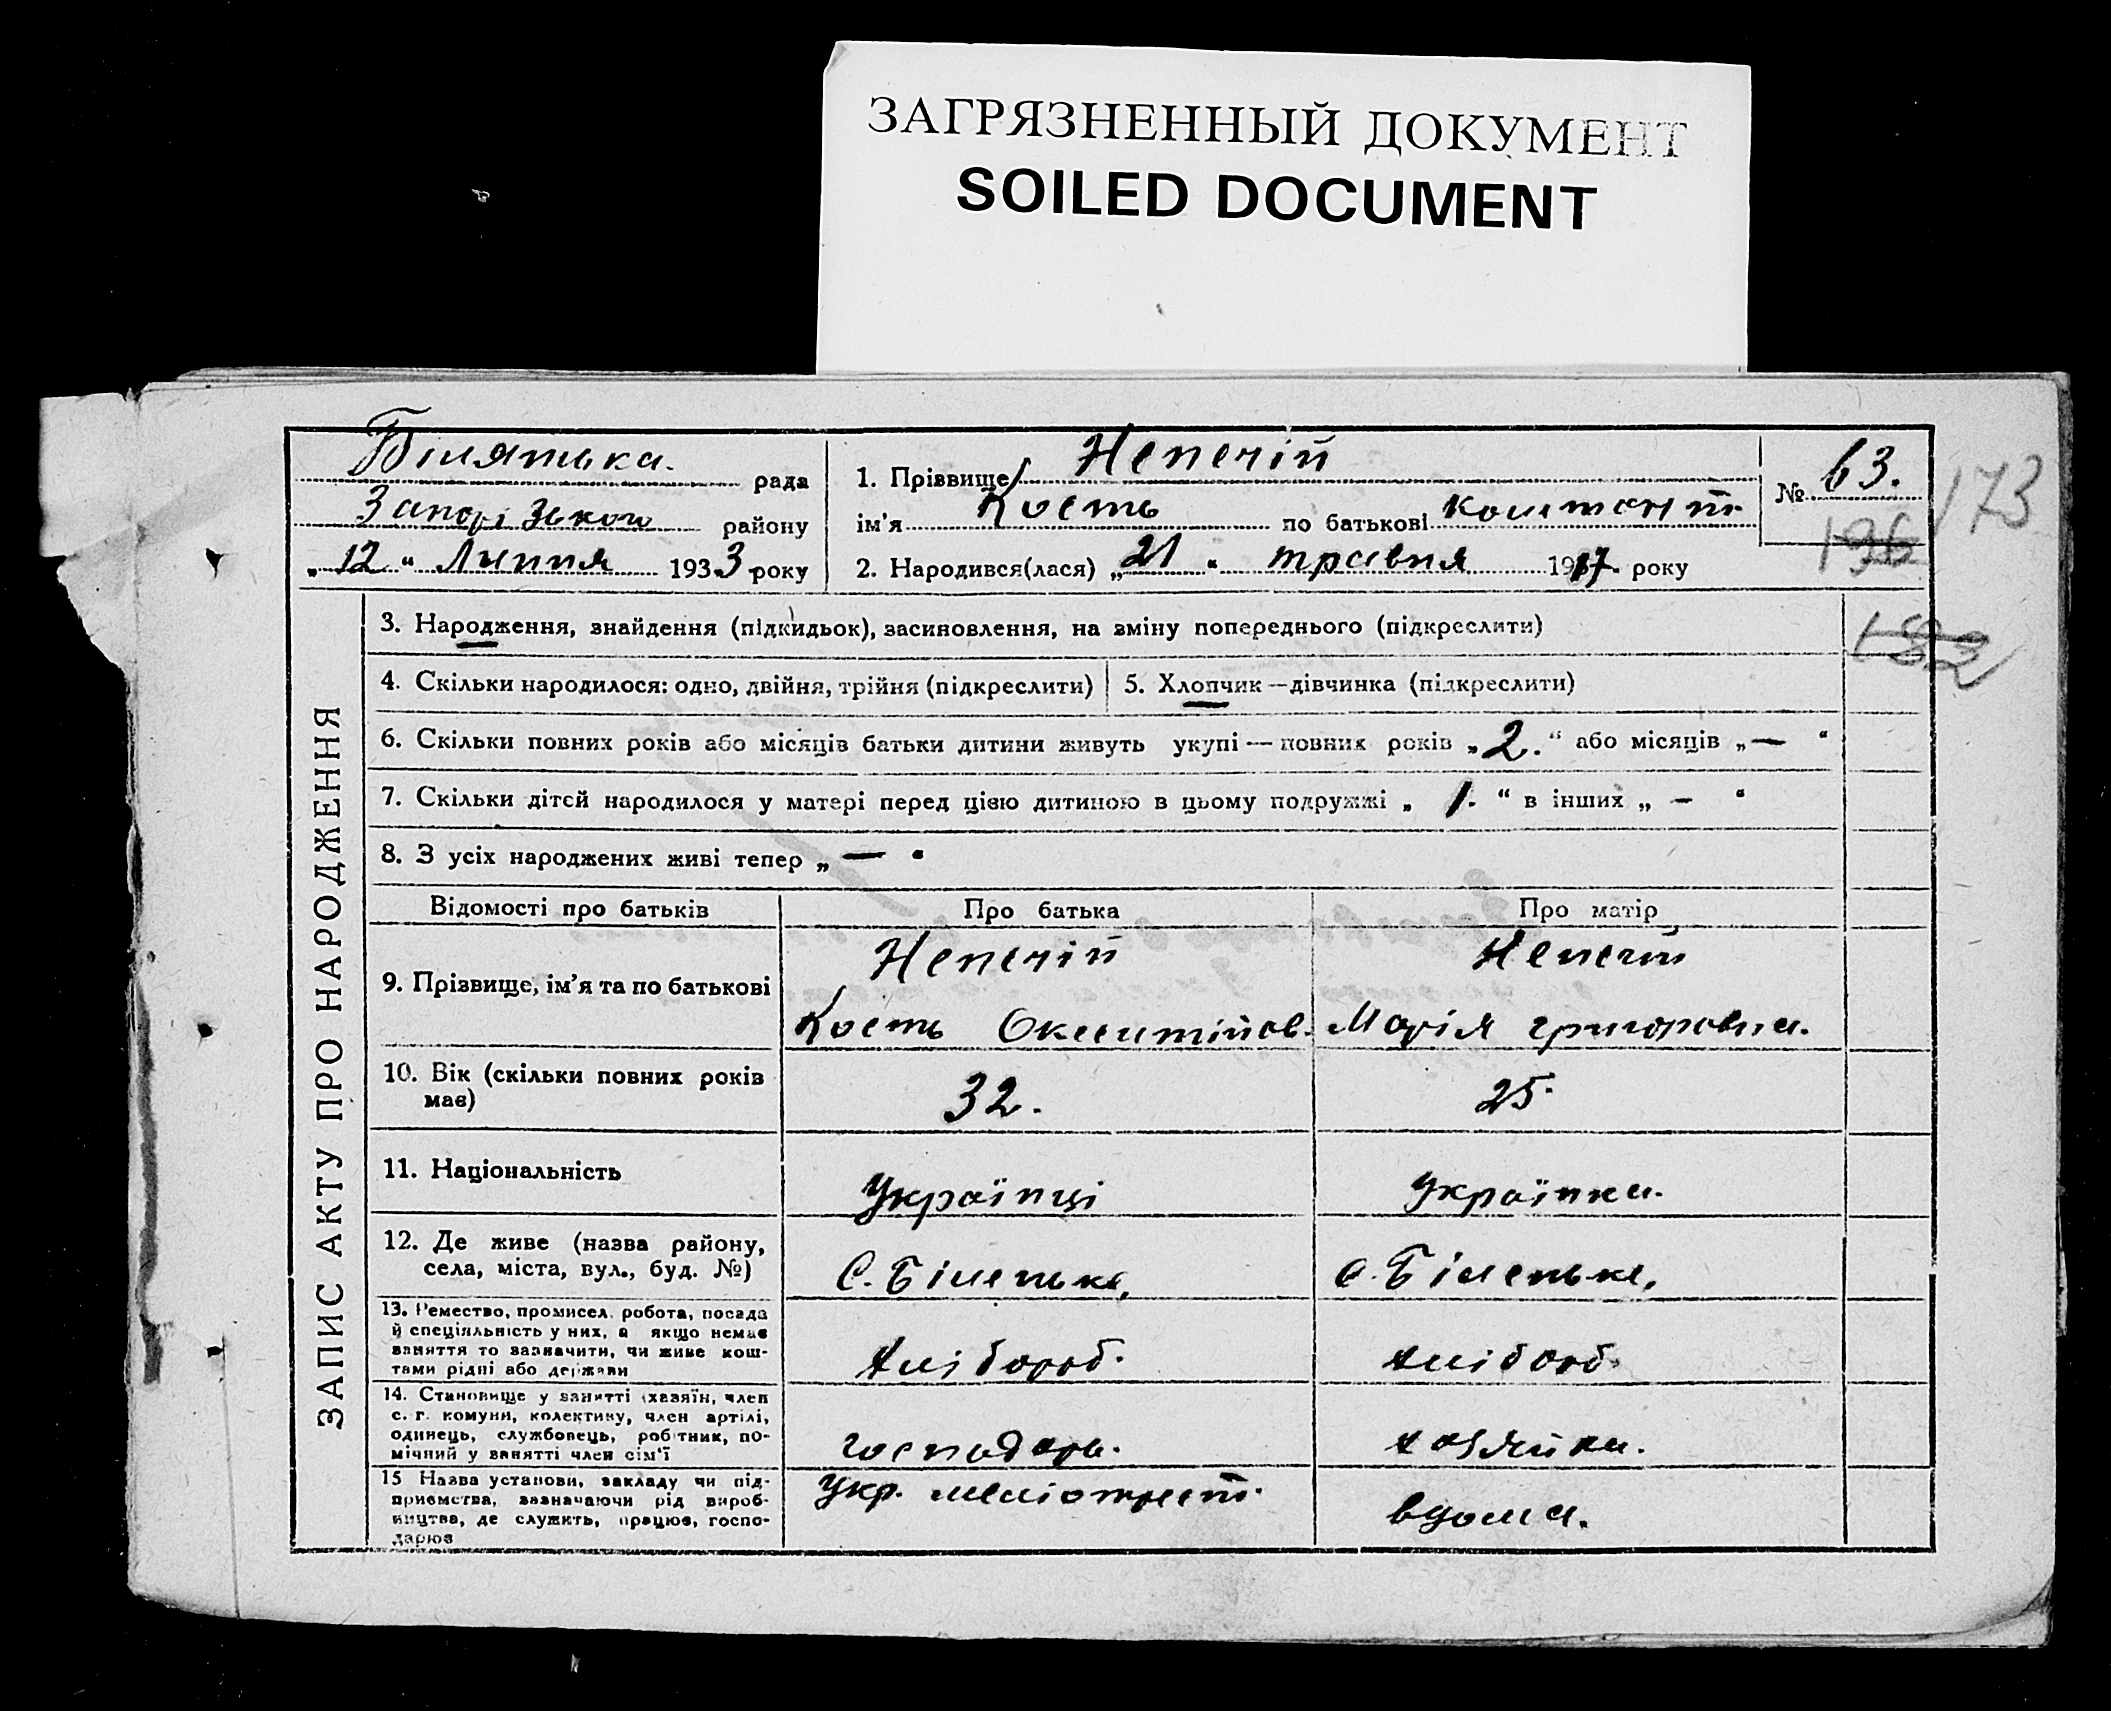 ЗАГРЯЗНЕННЫЙ ДОКУМЕНТ
SOILED DOCUMENT
рада
району
„12“ Липня 1933 року
1. Прізвище Непечій
ім'я Кость по батькові
№ 63.
173
196
182
2. Народився(лася) „21“ травня 1917. року
ЗАПИС АКТУ ПРО НАРОДЖЕННЯ
3. Народження, знайдення (підкидьок), засиновлення, на зміну попереднього (підкреслити)
4. Скільки народилося: одно, двійня, трійня (підкреслити)
5. Хлопчик—дівчинка (підкреслити)
6. Скільки повних років або місяців батьки дитини живуть укупі — повних років „2.“ або місяців „—“
7. Скільки дітей народилося у матері перед цією дитиною в цьому подружжі „1.“ в інших „—“
8. З усіх народжених живі тепер „—“
Відомості про батьків
Про батька
Про матір
9. Прізвище, ім'я та по батькові
Непечій
Кость
Непечій
Марія Григоровна.
10. Вік (скільки повних років
має)
32.
25.
11. Національність
Українці
Українка.
12. Де живе (назва району,
села, міста, вул., буд. №)
С. Біленьке,
с. Біленьке,
13. Ремество, промисел, робота, посада
й спеціяльність у них, а якщо немає
заняття то зазначити, чи живе кош-
тами рідні або держави
Хлібороб.
Хлібороб.
14. Становище у занятті (хазяїн, член
с. г. комуни, колективу, член артілі,
одинець, службовець, робітник, по-
мічний у занятті член сім'ї
господарь.
хозяйка.
15 Назва установи, закладу чи під-
приємства, зазначаючи рід вироб-
ництва, де служить, працює, госпо-
дарює
Укр.
вдома.